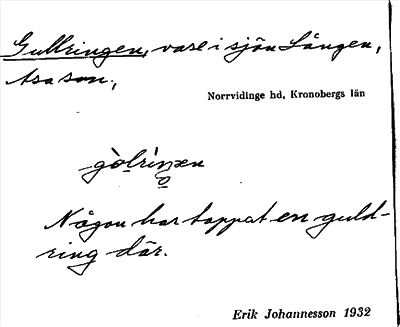 Gullringen, vase i sjön Lången,
Asa sn.,
Norrvidinge hd, Kronobergs län
gòlrìŋen
Någon har tappat en guld-
ring där.
Erik Johannesson 1932